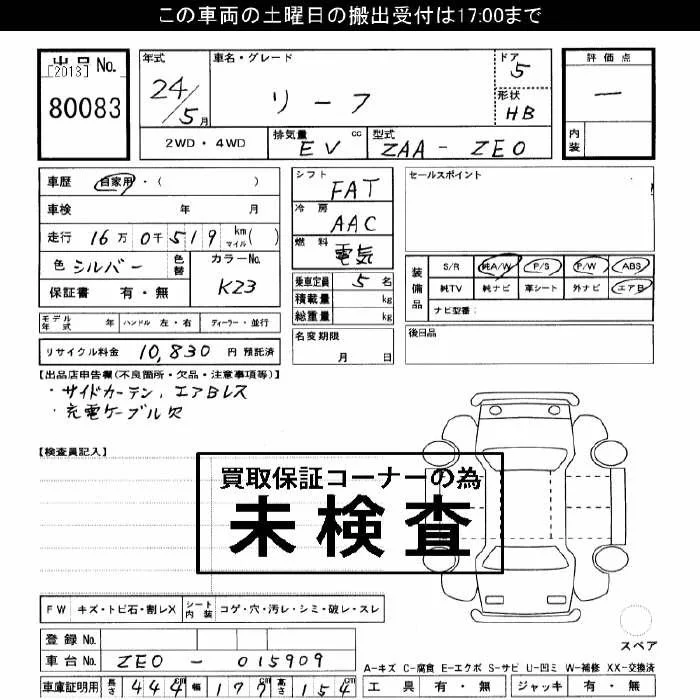 この車両の土曜日の搬出受付は17:00まで
出品No.
[2013]
80083
年式
24/5月
車名・グレード
リーフ
ドア
5
形状
HB
評価点
ー
内装
2WD・4WD
排気量 cc
EV
型式
ZAA-ZE0
車歴 自家用・( )
車検 年 月
走行 16万0千519km マイル( )
色 シルバー
色替
カラーNo.
K23
保証書 有・無
モデル年式 年 ハンドル 左・右 ディーラー・並行
リサイクル料金 10,830 円 預託済
シフト
FAT
冷房
AAC
燃料
電気
乗車定員 5 名
積載量 kg
総重量 kg
名変期限
月 日
セールスポイント
装備品
S/R 純A/W P/S P/W ABS
純TV 純ナビ 革シート 外ナビ エアB
ナビ型番:
後日品
【出品店申告欄(不良箇所・欠品・注意事項等)】
・サイドカーテン,エアBレス
・充電ケーブル欠
【検査員記入】
買取保証コーナーの為
未検査
FW キズ・トビ石・割レX シート内装 コゲ・穴・汚レ・シミ・破レ・スレ
スペア
登録No.
車台No. ZE0-015909
車庫証明用 長さ 444cm 幅 177cm 高さ 154cm
A-キズ C-腐食 E-エクボ S-サビ U-凹ミ W-補修 XX-交換済
工具 有・無 ジャッキ 有・無